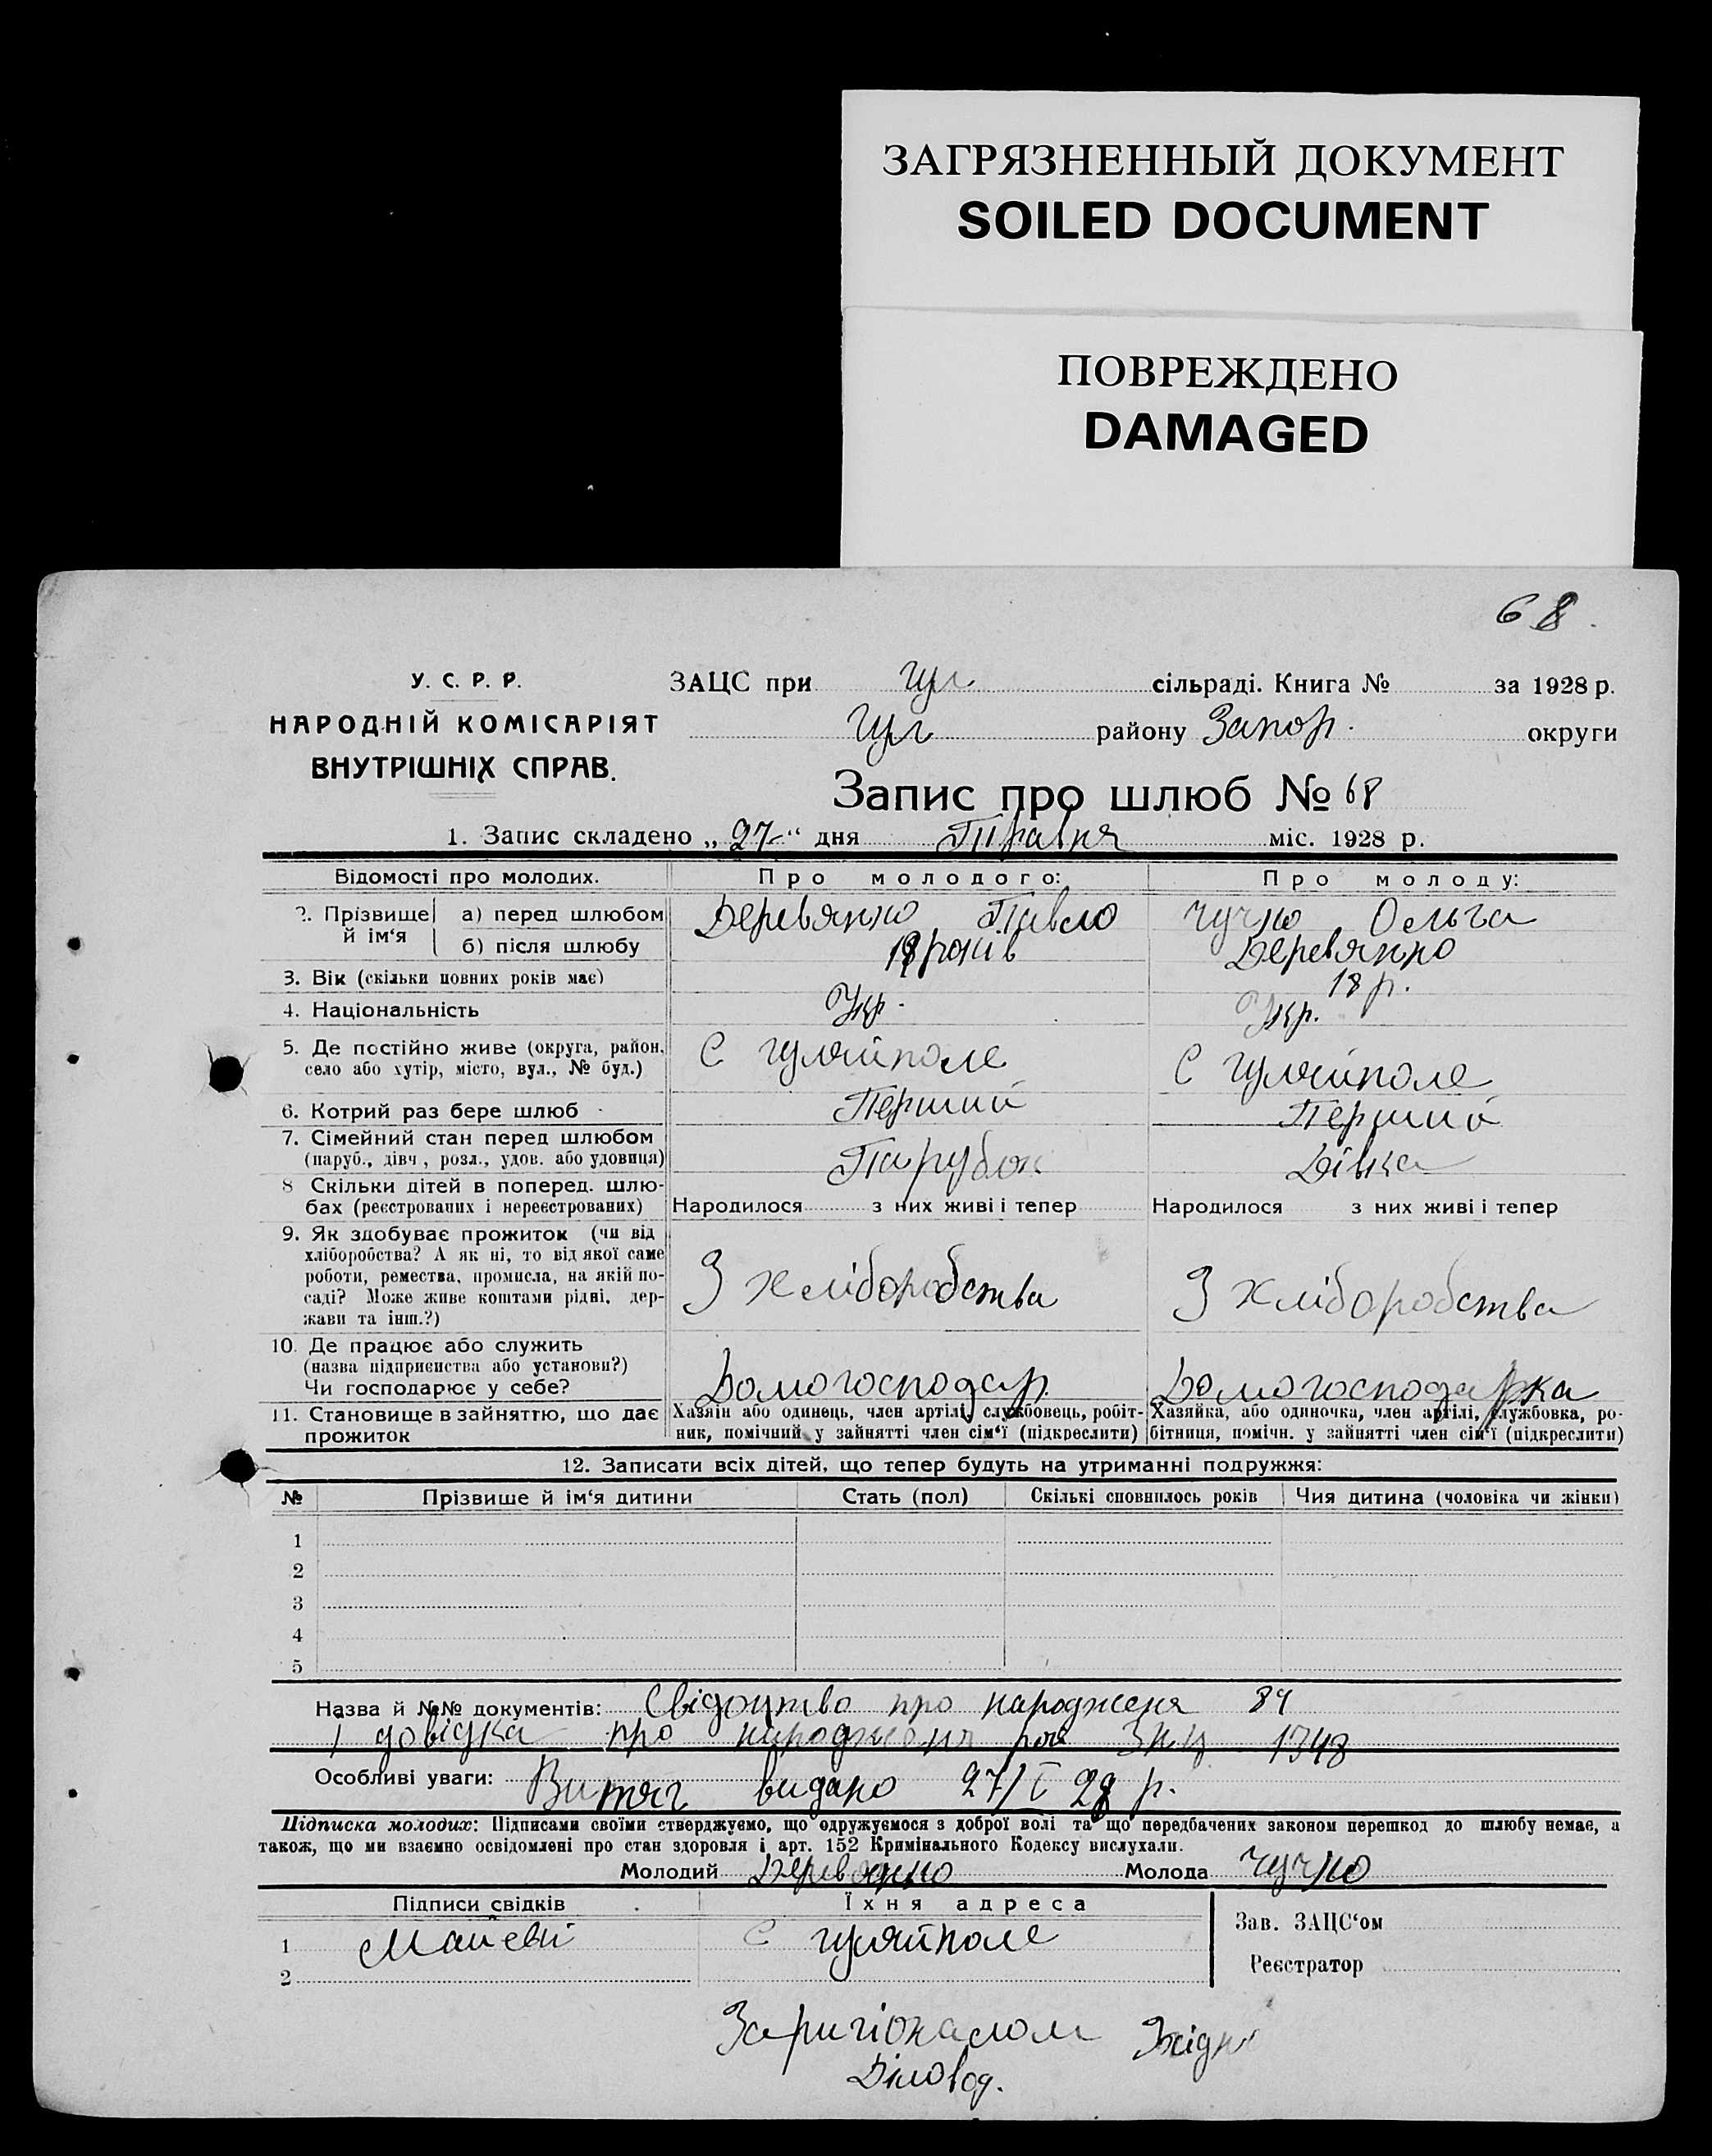 ЗАГРЯЗНЕННЫЙ ДОКУМЕНТ
SOILED DOCUMENT
ПОВРЕЖДЕНО
DAMAGED
68.
У. С. Р. Р.
НАРОДНІЙ КОМІСАРІЯТ
ВНУТРІШНІХ СПРАВ.
ЗАЦС при Гул сільраді. Книга № за 1928 р.
Гул району Запор. округи
Запис про шлюб № 68
1. Запис складено „27“ дня Травня міс. 1928 р.
Відомості про молодих. Про молодого: Про молоду:
2. Прізвище й ім‘я а) перед шлюбом Деревянко Павло Чучко Ольга
б) після шлюбу Деревянко
3. Вік (скільки повних років має) років 18 р.
4. Національність Укр. Укр.
5. Де постійно живе (округа, район, село або хутір, місто, вул., № буд.) С Гуляйполе С Гуляйполе
6. Котрий раз бере шлюб Перший Перший
7. Сімейний стан перед шлюбом (паруб., дівч., розл., удов. або удовиця) Парубок Дівка
8 Скільки дітей в поперед. шлюбах (реєстрованих і нереєстрованих) Народилося з них живі і тепер Народилося з них живі і тепер
9. Як здобуває прожиток (чи від хліборобства? А як ні, то від якої саме роботи, ремества, промисла, на якій посаді? Може живе коштами рідні, держави та інш.?) З хліборобства З хліборобства
10. Де працює або служить (назва підприємства або установи?) Чи господарює у себе? Домогосподар Домогосподарка
11. Становище в зайняттю, що дає прожиток Хазяїн або одинець, член артілі, службовець, робітник, помічний у зайнятті член сім‘ї (підкреслити) Хазяйка, або одиночка, член артілі, службовка, робітниця, помічн. у зайнятті член сім‘ї (підкреслити)
12. Записати всіх дітей, що тепер будуть на утриманні подружжя:
№ Прізвище й ім‘я дитини Стать (пол) Скількі сповнилось років Чия дитина (чоловіка чи жінки)
1
2
3
4
5
Назва й №№ документів: Свідоцтво про народженя 84
і довідка про народженя 1348
Особливі уваги: Витяг видано 27/V 28 р.
Підписка молодих: Підписами своїми стверджуємо, що одружуємося з доброї волі та що передбачених законом перешкод до шлюбу немає, а
також, що ми взаємно освідомлені про стан здоровля і арт. 152 Кримінального Кодексу вислухали.
Молодий Деревянко Молода Чучко
Підписи свідків Їхня адреса
1 С Гуляйполе
2
Зав. ЗАЦС‘ом
Реєстратор
Заригіоналом Згідно
Діловод.